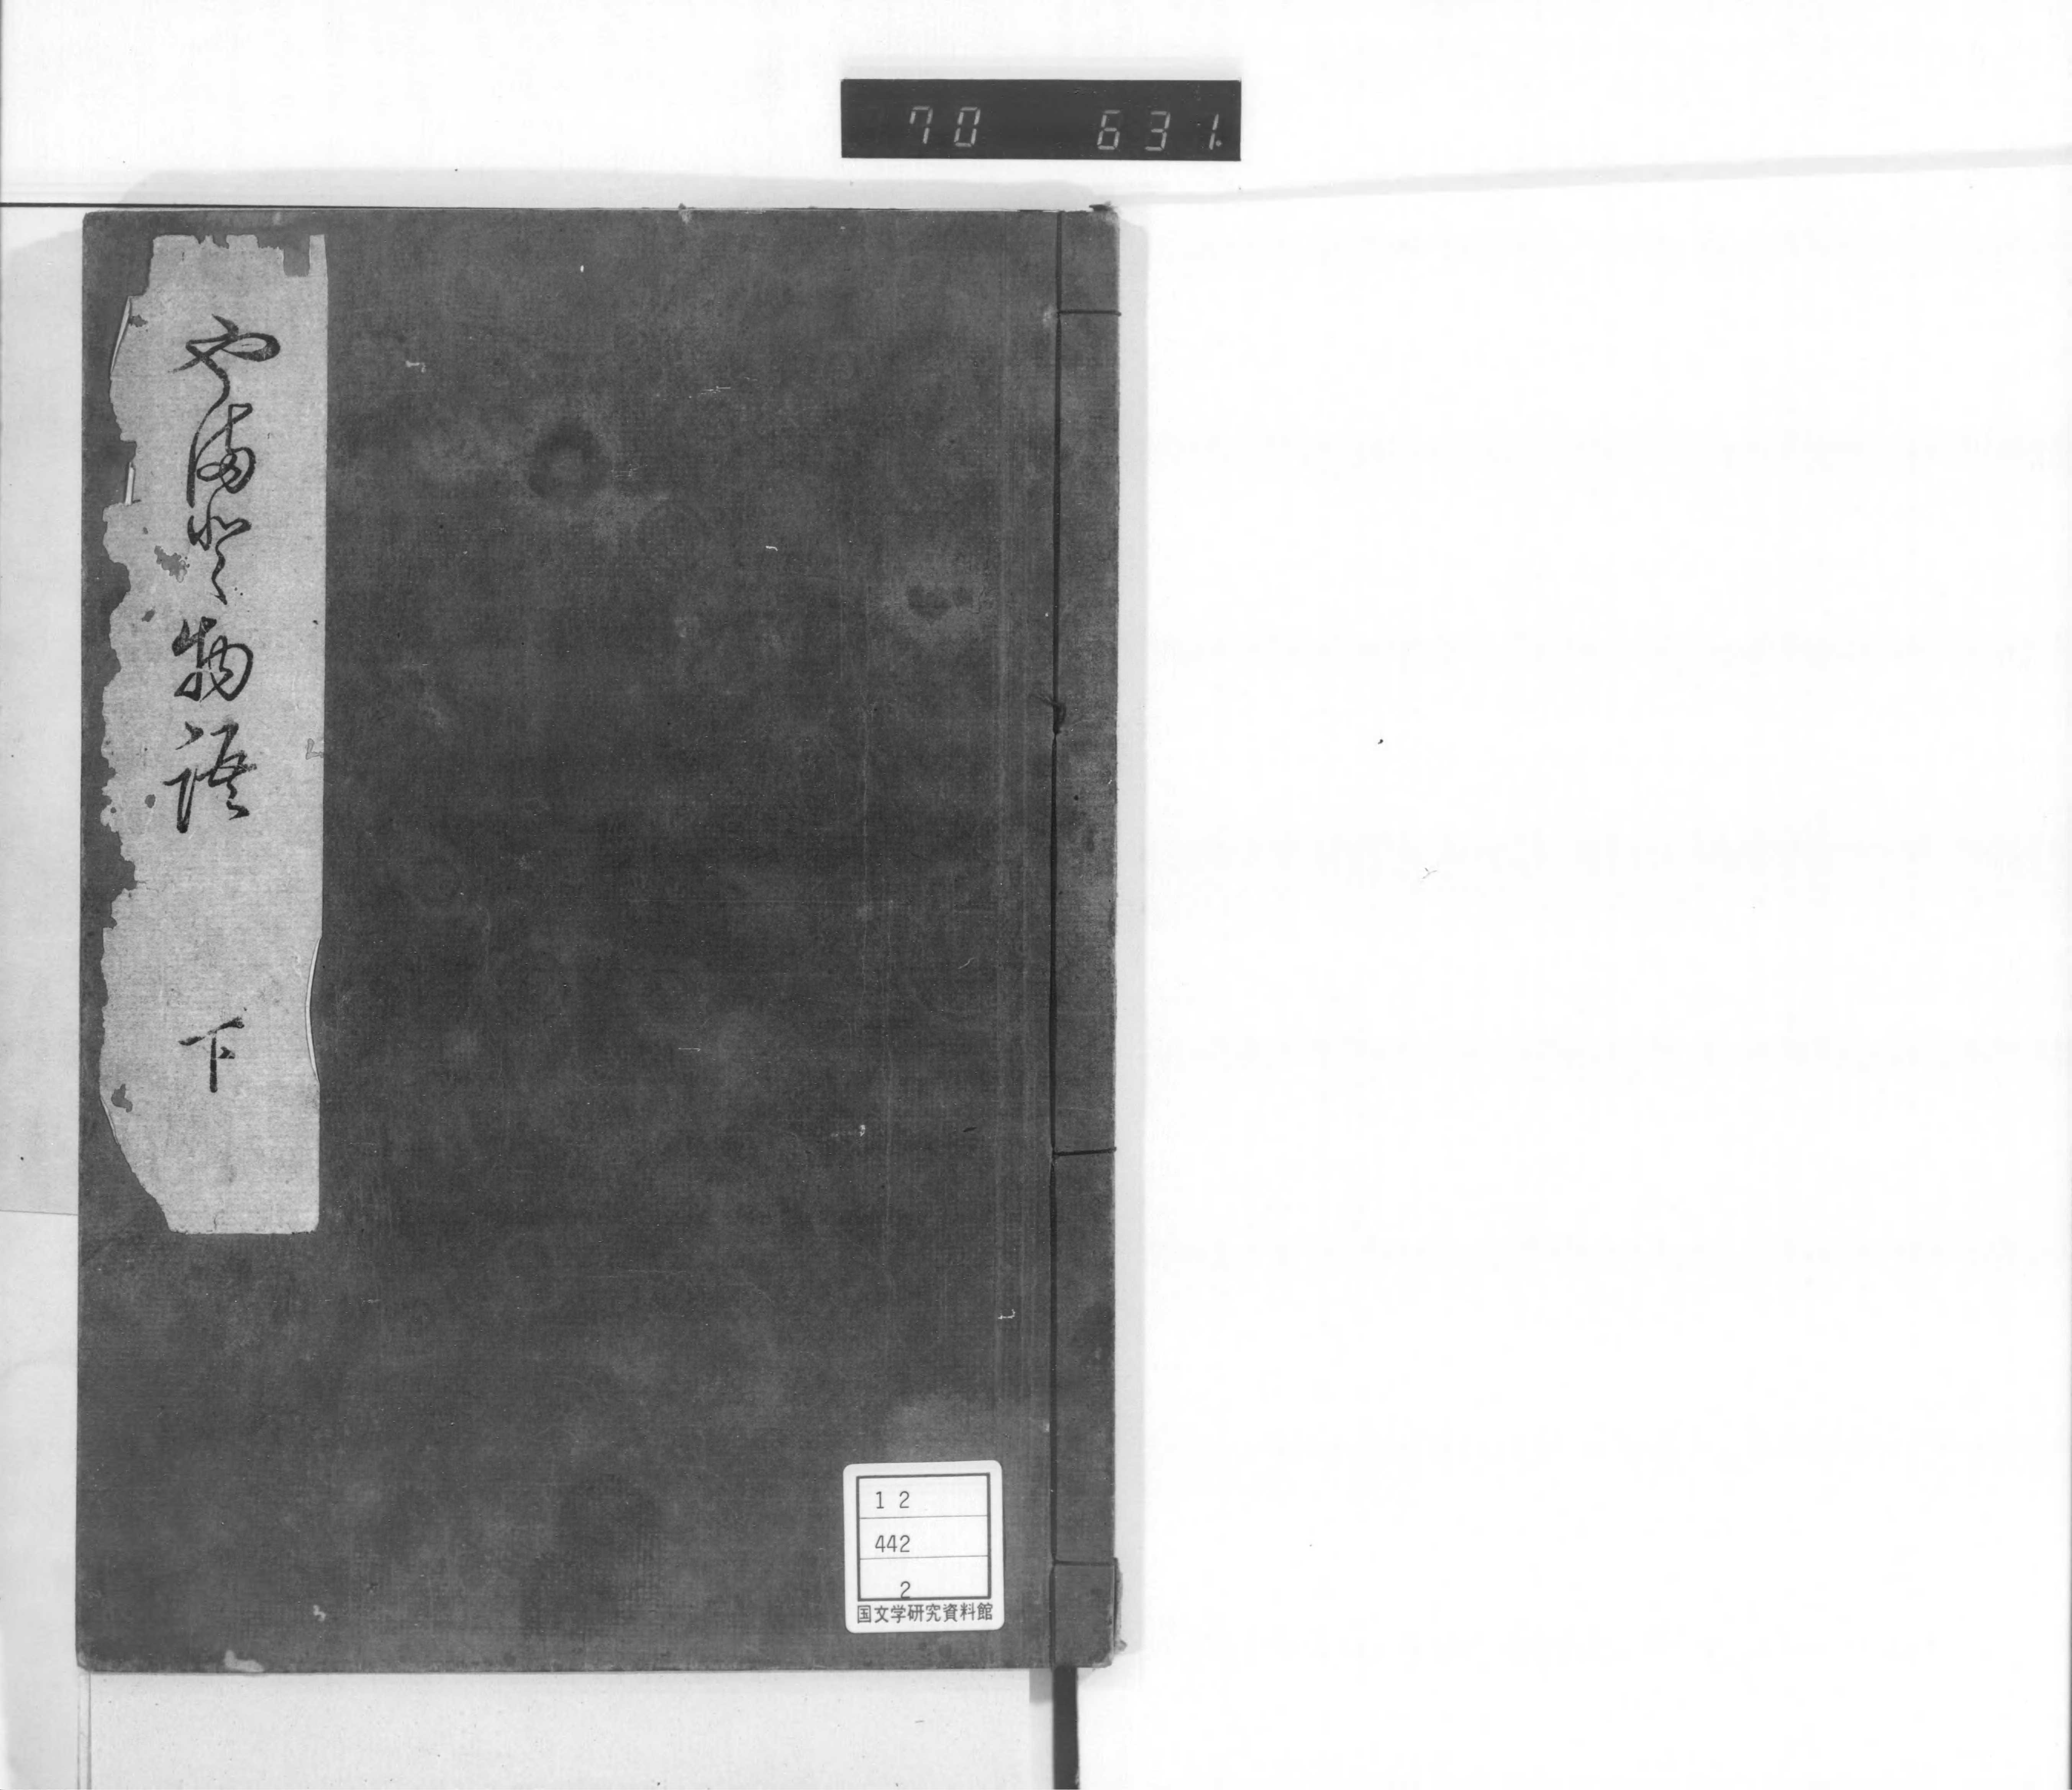 70 631
や満登物語 下
12
442
2
国文学研究資料館